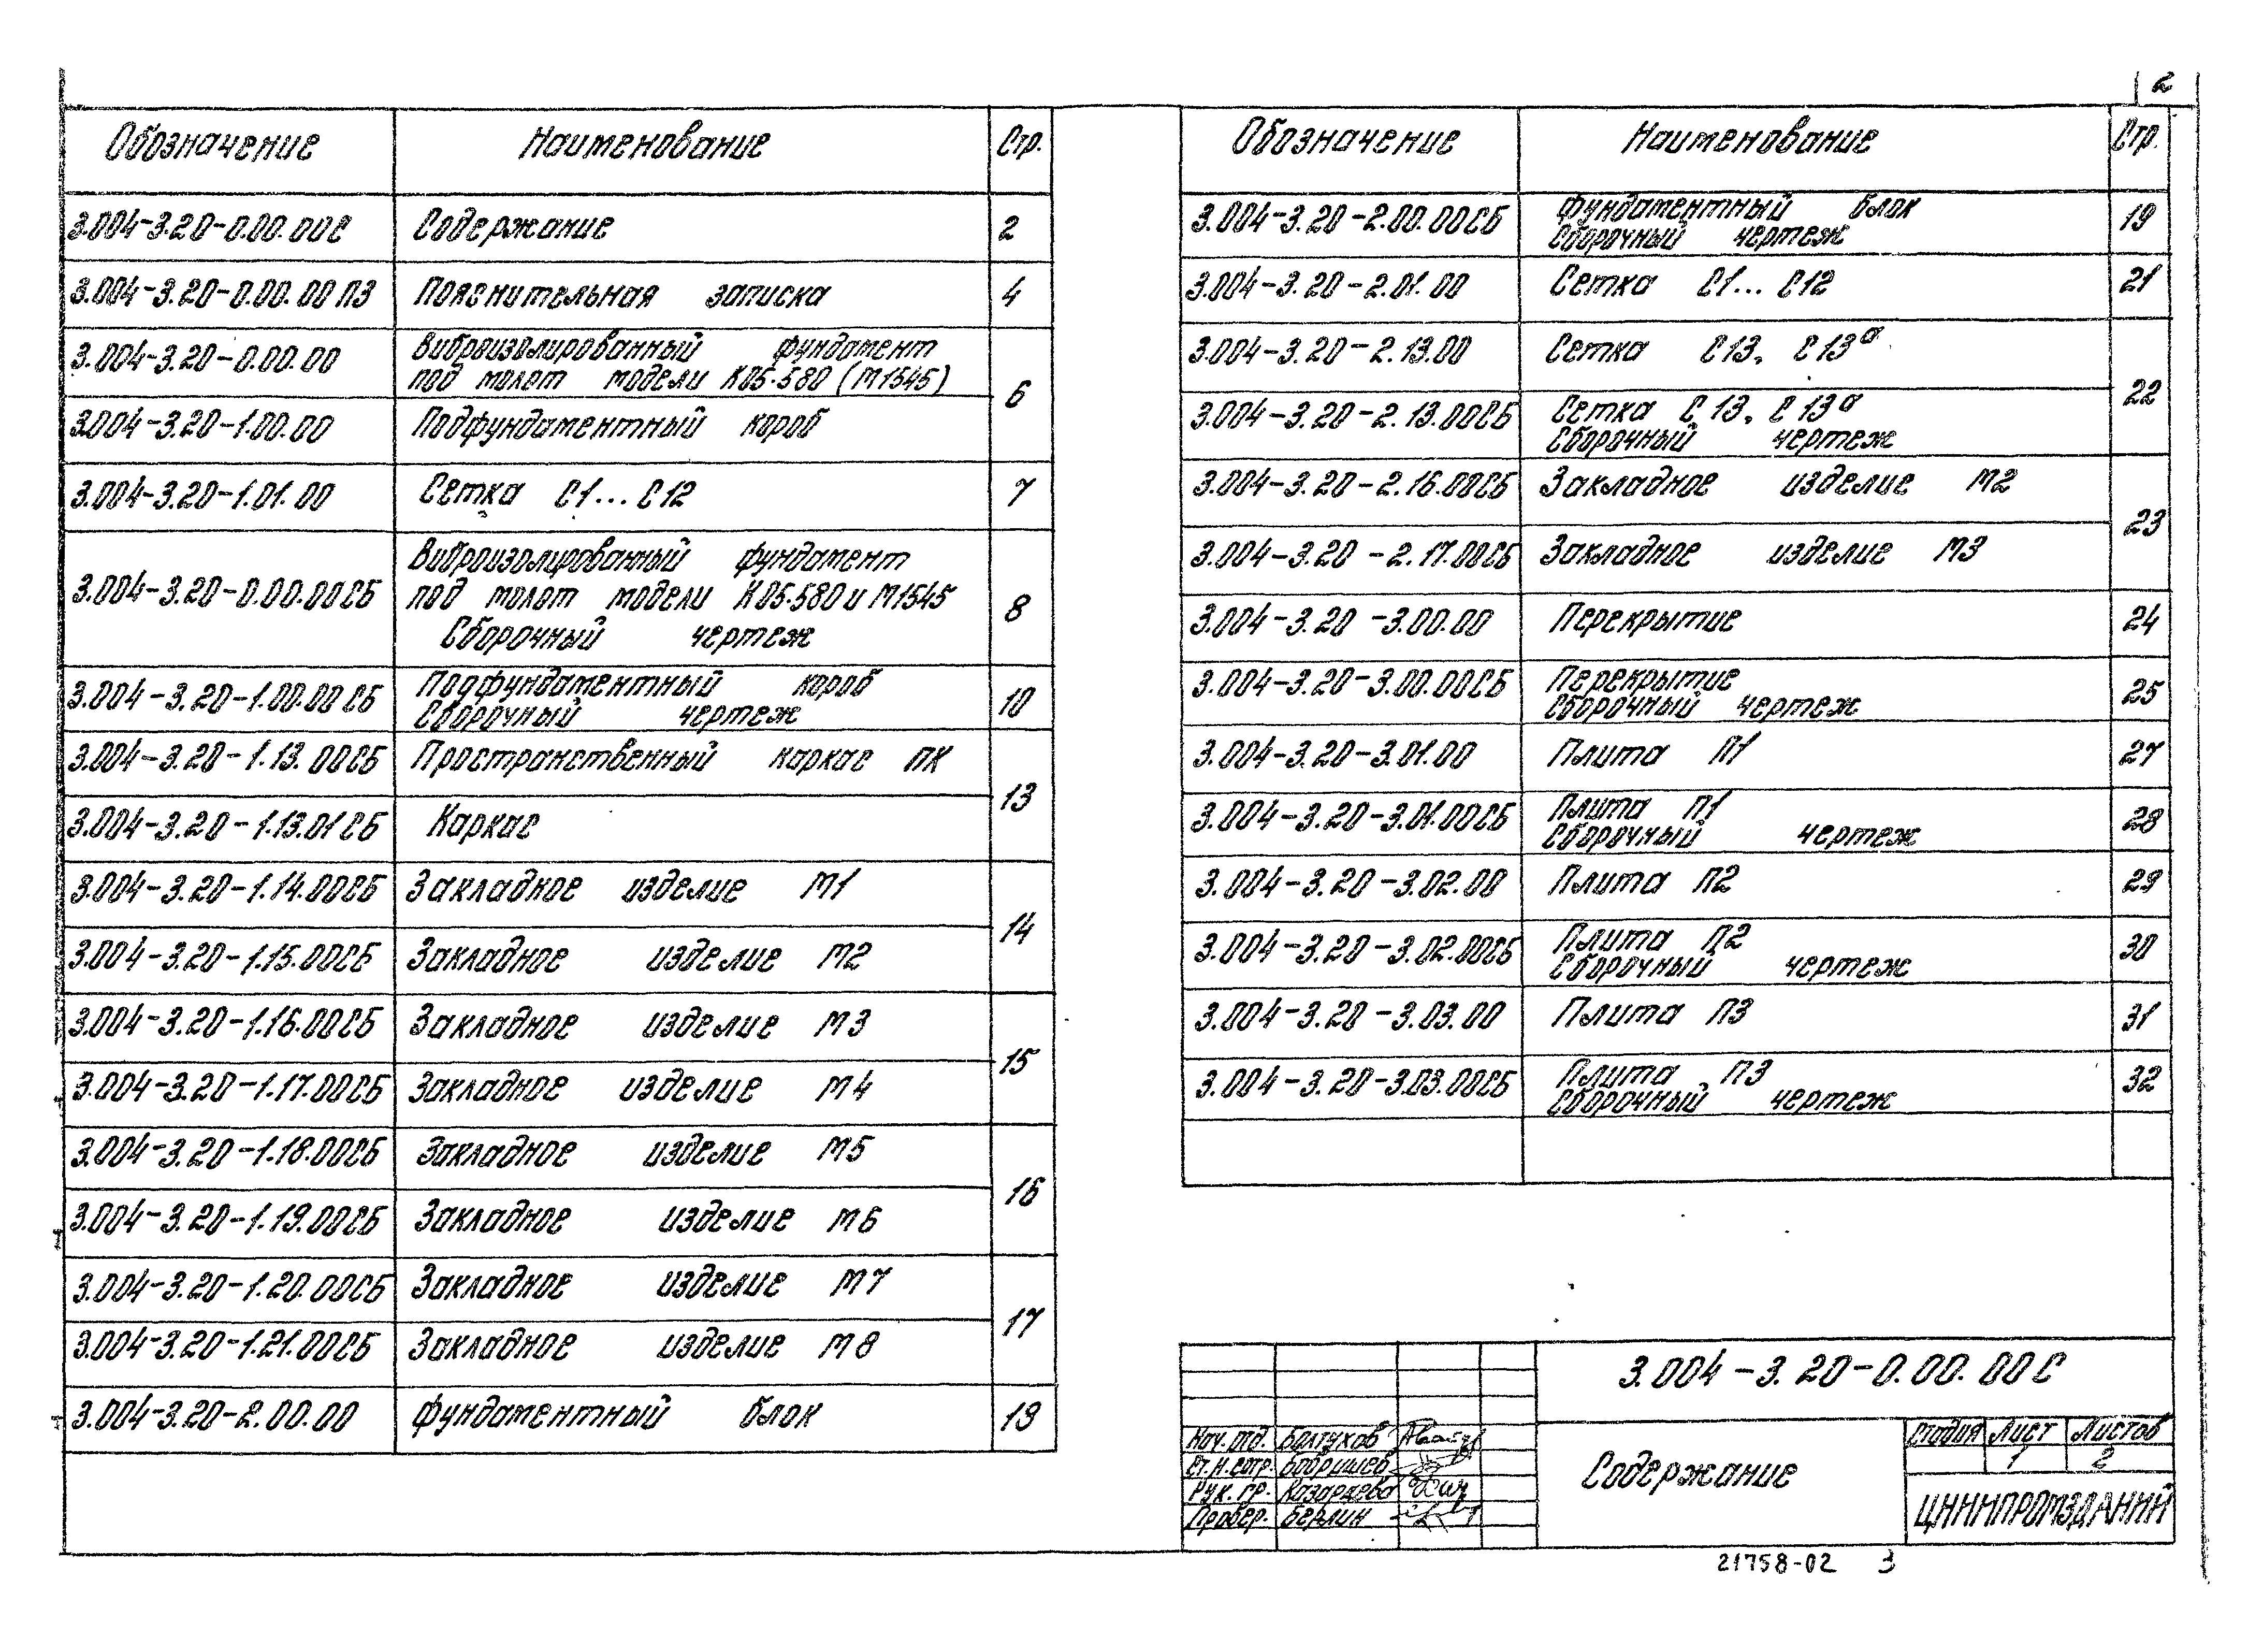 2
Обозначение Наименование Стр.
3.004-3.20-0.00.00С Содержание 2
3.004-3.20-0.00.00 ПЗ Пояснительная записка 4
3.004-3.20-0.00.00 Виброизолированный фундамент
под молот модели К05.580 (М1545) 6
3.004-3.20-1.00.00 Подфундаментный короб
3.004-3.20-1.01.00 Сетка С1...С12 7
Виброизолированный фундамент
3.004-3.20-0.00.00СБ под молот модели К05.580 и М1545 8
Сборочный чертеж
3.004-3.20-1.00.00СБ Подфундаментный короб 10
Сборочный чертеж
3.004-3.20-1.13.00СБ Пространственный каркас ПК
13
3.004-3.20-1.13.01СБ Каркас
3.004-3.20-1.14.00СБ Закладное изделие М1
14
3.004-3.20-1.15.00СБ Закладное изделие М2
3.004-3.20-1.16.00СБ Закладное изделие М3
15
3.004-3.20-1.17.00СБ Закладное изделие М4
3.004-3.20-1.18.00СБ Закладное изделие М5
16
3.004-3.20-1.19.00СБ Закладное изделие М6
3.004-3.20-1.20.00СБ Закладное изделие М7
17
3.004-3.20-1.21.00СБ Закладное изделие М8
3.004-3.20-2.00.00 Фундаментный блок
Обозначение Наименование Стр.
3.004-3.20-2.00.00СБ Фундаментный блок 19
Сборочный чертеж
3.004-3.20-2.01.00 Сетка С1...С12 21
3.004-3.20-2.13.00 Сетка С13, С13а
22
3.004-3.20-2.13.00СБ Сетка С13, С13а
Сборочный чертеж
3.004-3.20-2.16.00СБ Закладное изделие М2
23
3.004-3.20-2.17.00СБ Закладное изделие М3
3.004-3.20-3.00.00 Перекрытие 24
3.004-3.20-3.00.00СБ Перекрытие 25
Сборочный чертеж
3.004-3.20-3.01.00 Плита П1 27
3.004-3.20-3.01.00СБ Плита П1 28
Сборочный чертеж
3.004-3.20-3.02.00 Плита П2 29
3.004-3.20-3.02.00СБ Плита П2 30
Сборочный чертеж
3.004-3.20-3.03.00 Плита П3 31
3.004-3.20-3.03.00СБ Плита П3 32
Сборочный чертеж
3.004-3.20-0.00.00С
Нач. отд. Болтухов
Ст.н.сотр. Бобрышев
Рук. гр.
Провер. Берлин
Содержание
Стадия Лист Листов
1 2
ЦНИИПРОМЗДАНИЙ
21758-02 3